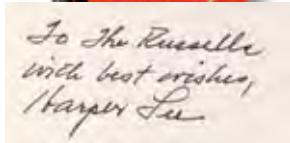 To The Russells
with best wishes,
Harper Lee